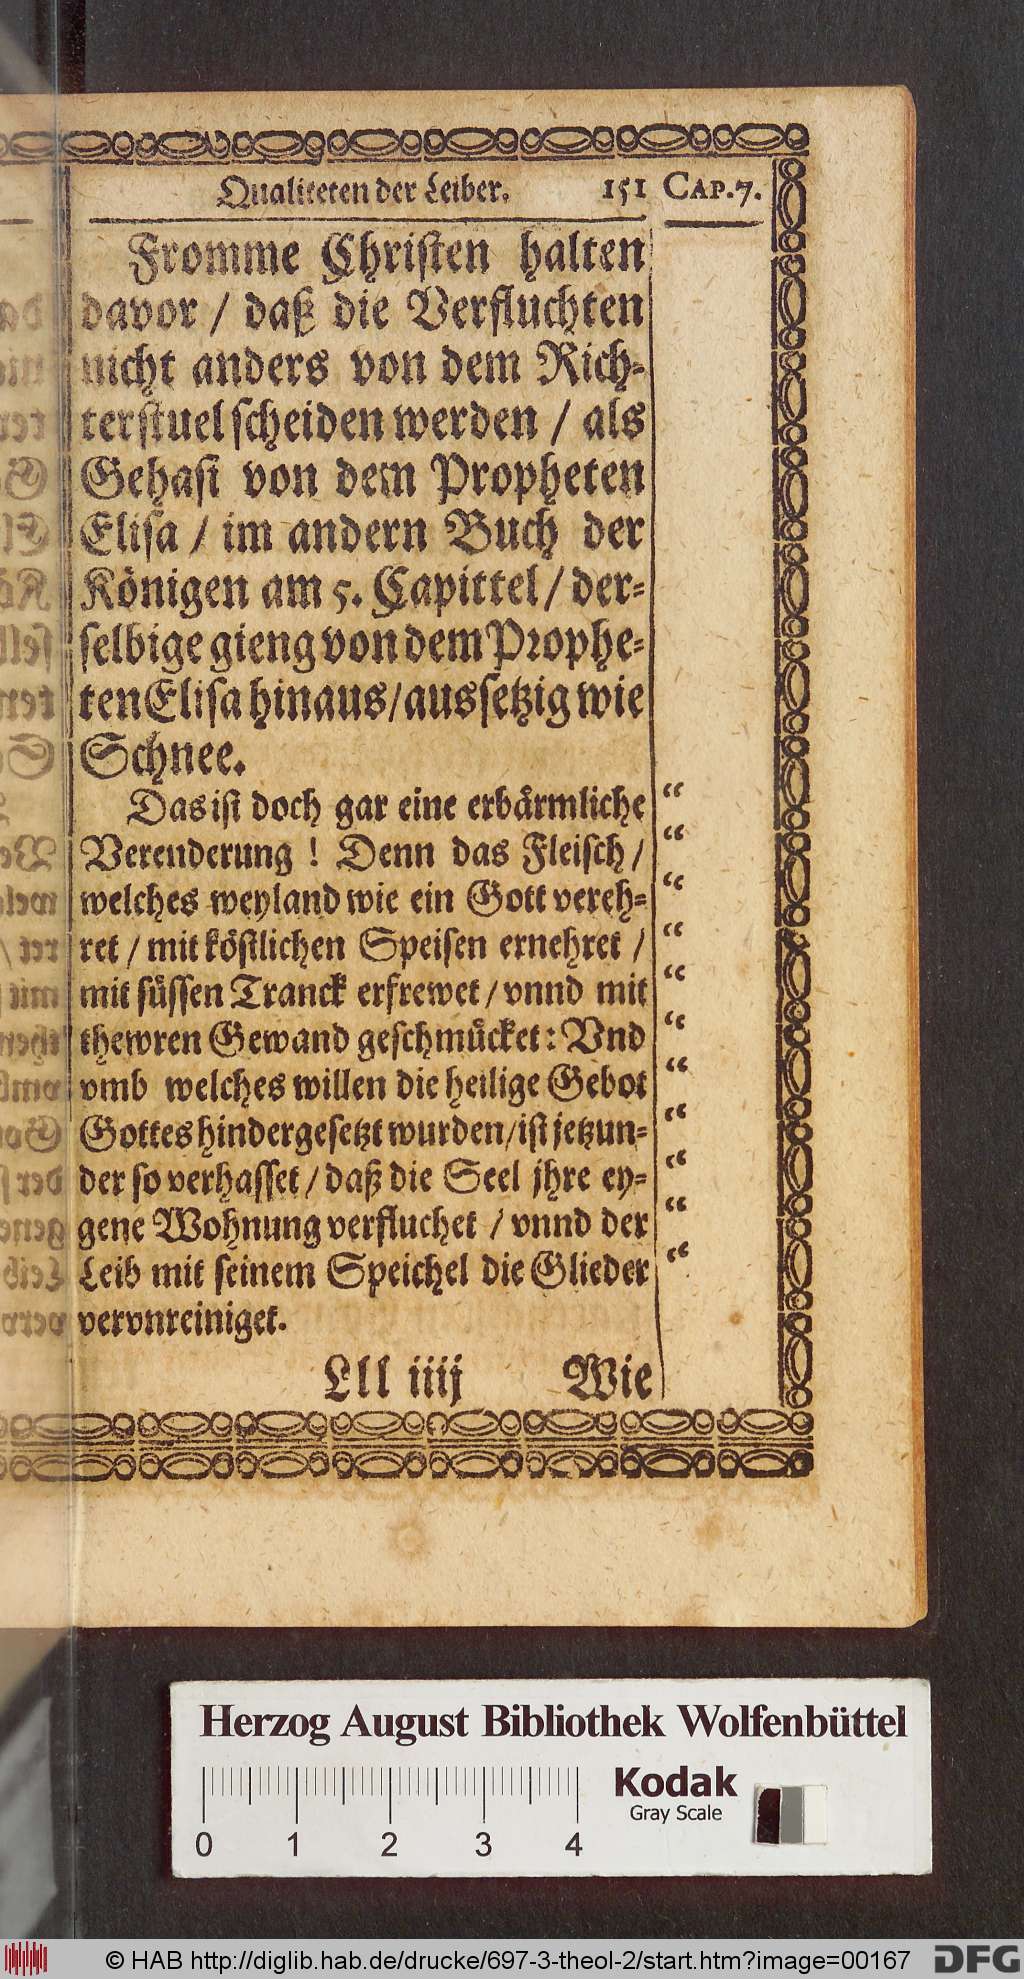 Qualiteten der Leiber. 151 CAP.7.
Fromme Christen halten
davor / daß die Verfluchten
nicht anders von dem Rich-
terstuel scheiden werden / als
Gehasi von dem Propheten
Elisa / im andern Buch der
Königen am 5. Capittel / der-
selbige gieng von dem Prophe-
ten Elisa hinaus / aussetzig wie
Schnee.
Das ist doch gar eine erbaͤrmliche “
Verenderung ! Denn das Fleisch / “
welches weyland wie ein Gott vereh- “
ret / mit köstlichen Speisen ernehret / “
mit suͤssen Tranck erfrewet / vnnd mit “
thewren Gewand geschmuͤcket : Vnd “
vmb welches willen die heilige Gebot “
Gottes hindergesetzt wurden / ist jetzun- “
der so verhasset / daß die Seel jhre ey- “
gene Wohnung verfluchet / vnnd der “
Leib mit seinem Speichel die Glieder “
vervnreiniget.
Lll iiij Wie
Herzog August Bibliothek Wolfenbüttel
Kodak
Gray Scale
0 1 2 3 4
© HAB http://diglib.hab.de/drucke/697-3-theol-2/start.htm?image=00167 DFG